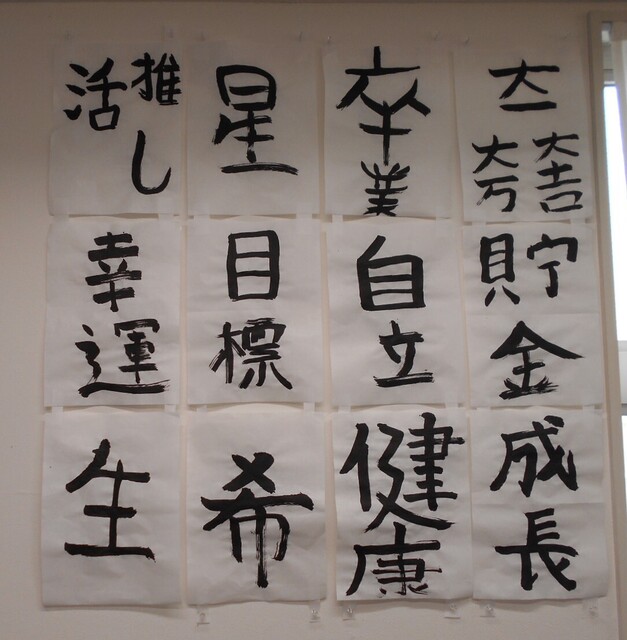 大一
大吉
大万
貯金
成長
卒業
自立
健康
星
目標
希
推し
活
幸運
生